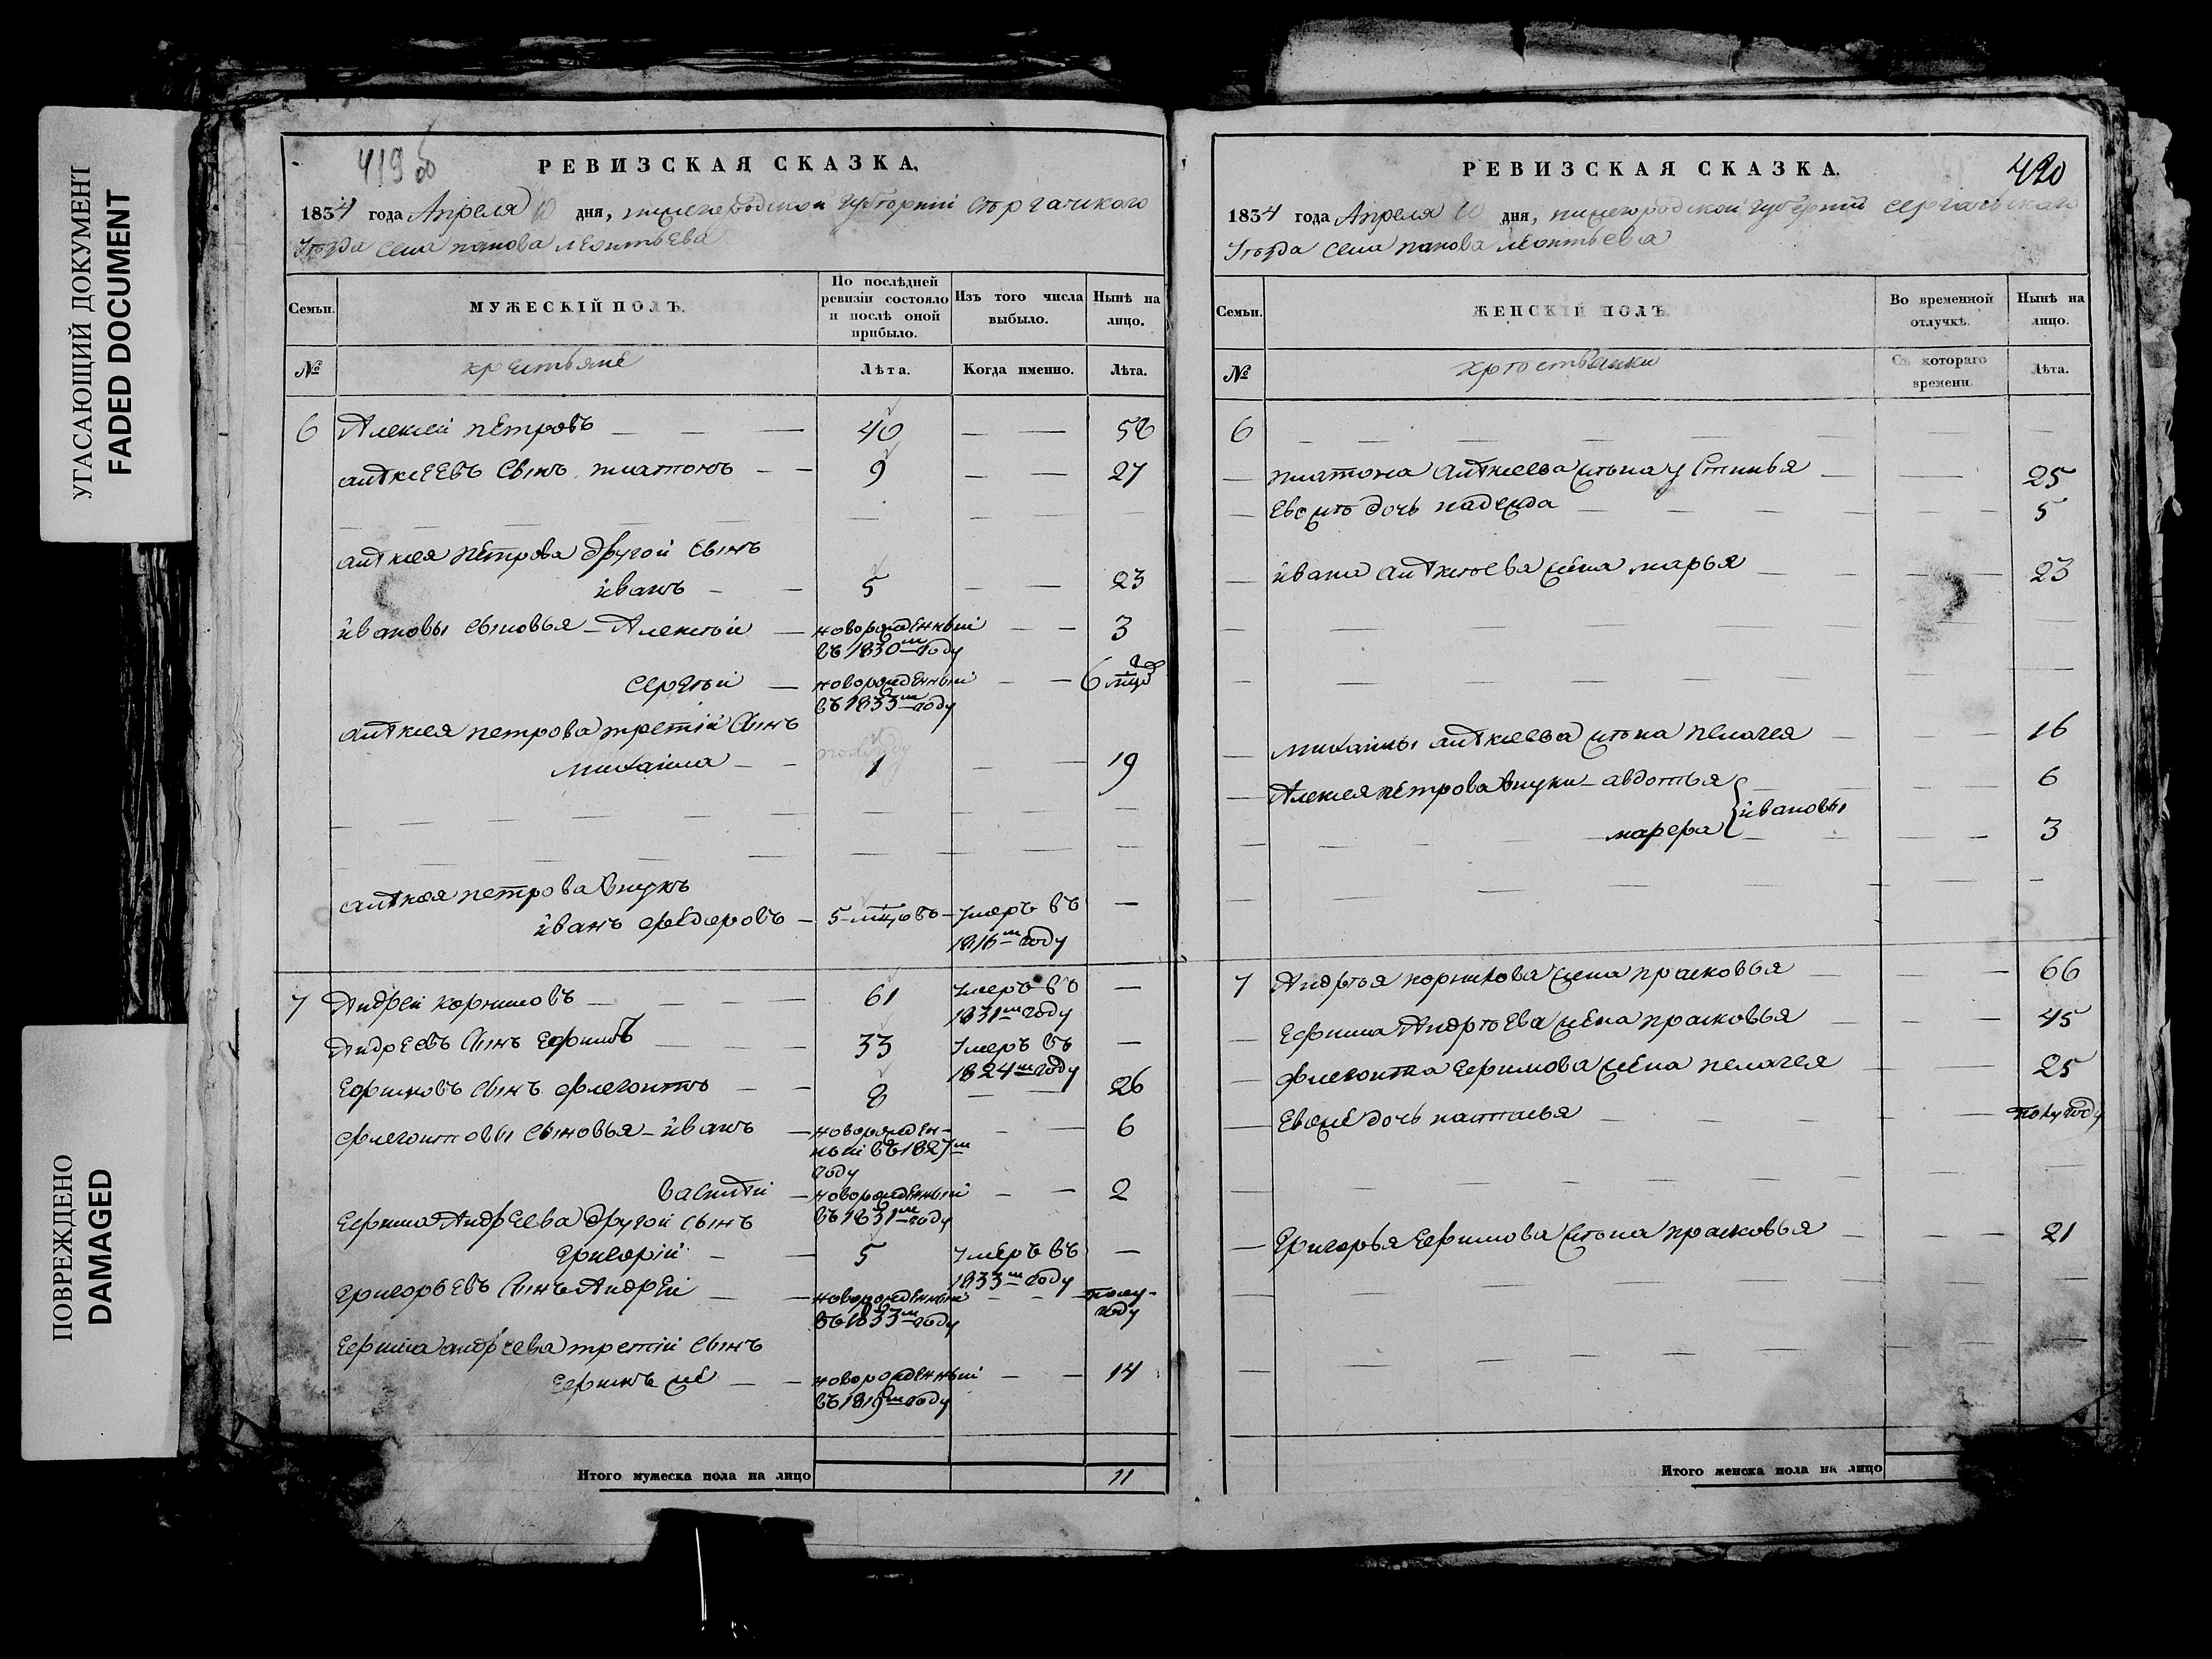 УГАСАЮЩИЙ ДОКУМЕНТ
FADED DOCUMENT
ПОВРЕЖДЕНО
DAMAGED
419 об
РЕВИЗСКАЯ СКАЗКА.
1834 года Апреля 10 дня, нижегородской губернии Сергачского
Уезда села панова леонтьева
Семьи. МУЖЕСКІЙ ПОЛЪ. По послѣдней ревизіи состояло и послѣ оной прибыло. Изъ того числа выбыло. Нынѣ на лицо.
№ крестьяне Лѣта. Когда именно. Лѣта.
6 Алексей петровъ 40 58
алексеевъ сынъ платонъ 9 27
алексея петрова другой сынъ
иванъ 5 23
ивановы сыновья Алексѣй новорожденный въ 1830м году 3
сергѣй новорожденный въ 1833м году 6
алексея петрова третій сынъ
михаила 1 19
алексея петрова внукъ
иванъ федоровъ 5 мцовъ Умеръ въ 1816м году
7 Андрей корниловъ 61 Умеръ въ 1831м году
Андреевъ сынъ ефимъ 33 Умеръ въ 1824м году
Ефимовъ сынъ флегонтъ 8 26
флегонтовы сыновья иванъ новорожденный въ 1827м году 6
василей новорожденный въ 1831м году 2
Ефима Андреева другой сынъ
григорій 5 Умеръ въ 1833м году
григорьевъ сынъ Андрей новорожденный въ 1833м году полугоду
Ефима андреева третій сынъ
Ефимъ же новорожденный въ 1819м году 14
Итого мужеска пола на лицо 11
420
РЕВИЗСКАЯ СКАЗКА.
1834 года Апреля 10 дня, нижегородской губерніи сергачьскаго
Уезда села панова леонтьева
Семьи. ЖЕНСКІЙ ПОЛЪ. Во временной отлучкѣ. Нынѣ на лицо.
№ Съ котораго времени. Лѣта.
6
платона алексеева жена устинья 25
Ево же дочь надежда 5
ивана алексеева жена марья 23
михаилы алексеева жена пелагея 16
Алексея петрова внуки авдотья 6
ивановы
марфа 3
7 Андрея корнилова жена прасковья 66
Ефима Андреева жена прасковья 45
флегонта Ефимова жена пелагея 25
Ево же дочь наталья полугоду
Григорья Ефимова жена прасковья 21
Итого женска пола на лицо